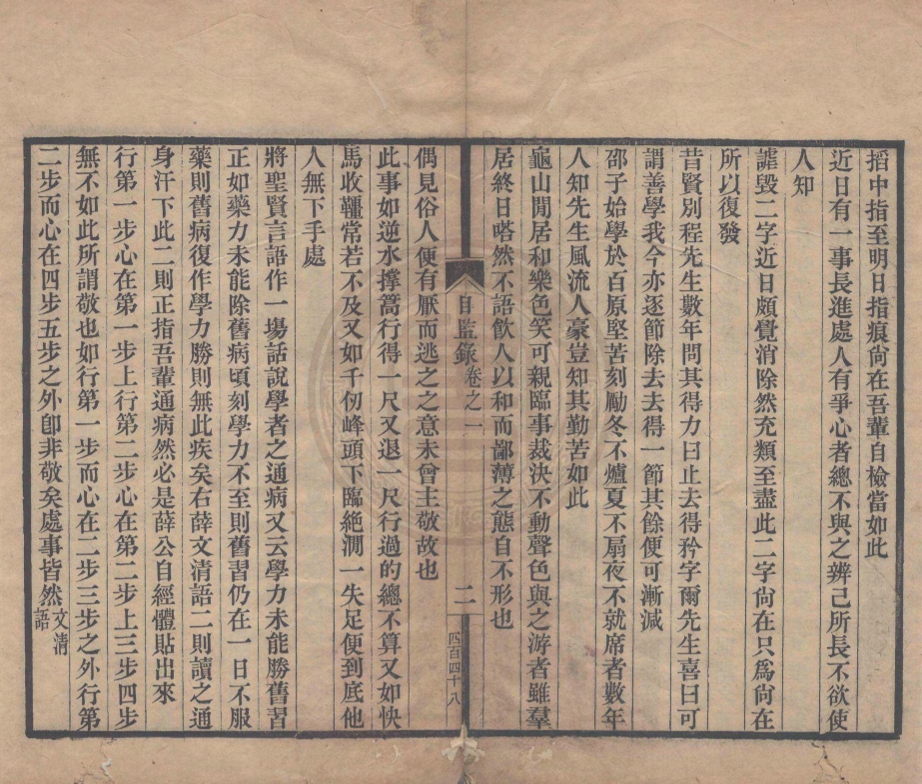 搯中指至明日指痕尙在吾輩自檢當如此
近日有一事長進處人有爭心者總不與之辨己所長不欲使
人知
謔毀二字近日頗覺消除然充類至盡此二字尙在只爲尙在
所以復發
昔賢別程先生數年問其得力曰止去得矜字爾先生喜曰可
謂善學我今亦逐節除去去得一節其餘便可漸減
邵子始學於百原堅苦刻勵冬不爐夏不扇夜不就席者數年
人知先生風流人豪豈知其勤苦如此
龜山閒居和樂色笑可親臨事裁決不動聲色與之游者雖羣
居終日嗒然不語飲人以和而鄙薄之態自不形也
自監錄卷之一
二
四百四十八
偶見俗人便有厭而逃之之意未曾主敬故也
此事如逆水撐篙行得一尺又退一尺行過的總不算又如快
馬收韁常若不及又如千仞峰頭下臨絶澗一失足便到底他
人無下手處
將聖賢言語作一場話說學者之通病又云學力未能勝舊習
正如藥力未能除舊病頃刻學力不至則舊習仍在一日不服
藥則舊病復作學力勝則無此疾矣右薛文清語二則讀之通
身汗下此二則正指吾輩通病然必是薛公自經體貼出來
行第一步心在第一步上行第二步心在第二步上三步四步
無不如此所謂敬也如行第一步而心在二步三步之外行第
二步而心在四步五步之外卽非敬矣處事皆然文清語